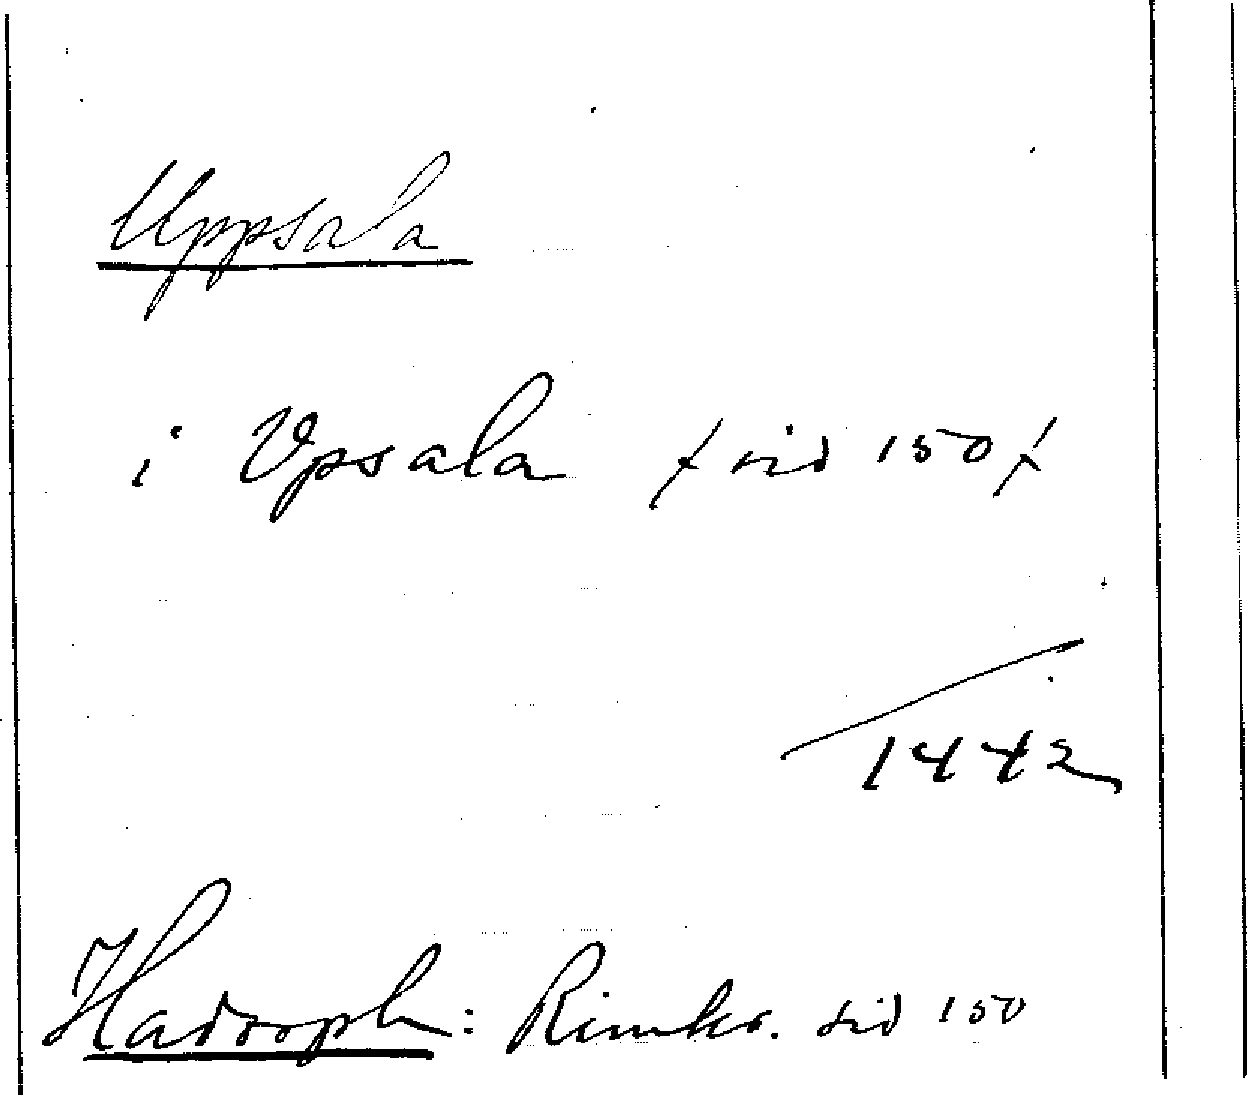 Uppsala
i Vpsala / sid 150 /
1442
Hadorph: Rimkr. sid 150